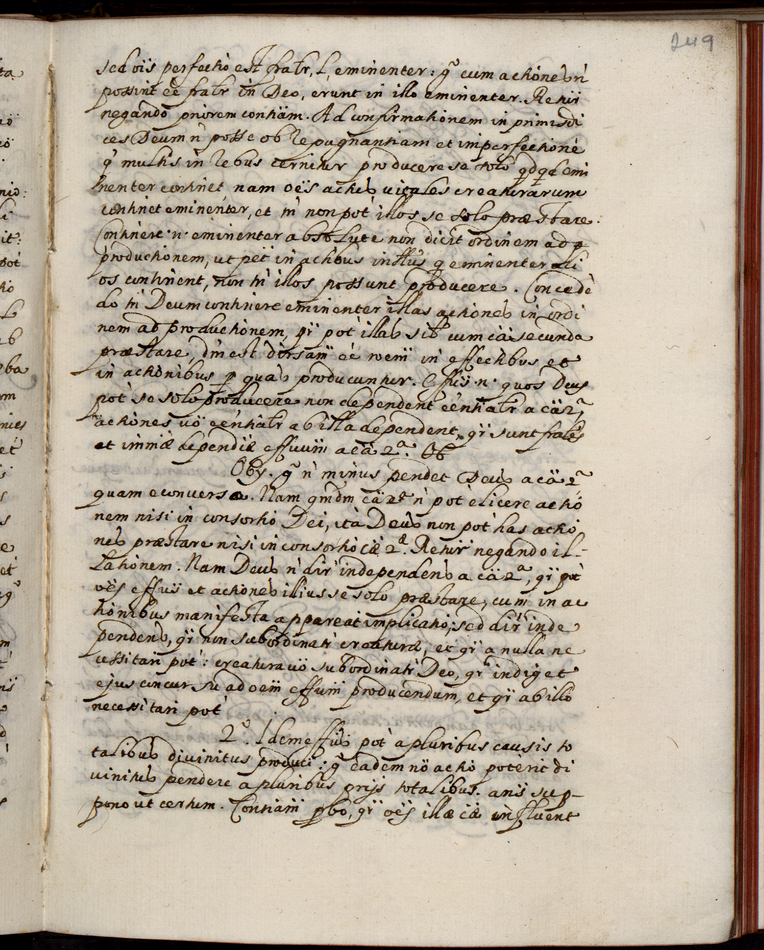 249
sed oīs perfectio est fratr, l, eminenter: gͦ cum actiones n̄
possint eē fratr in Deo, erunt in illo eminenter. Respr̄
negando priorem contiām. Ad confirmationem in primis di
ces Deum n̄ posse ob repugnantiam et imperfectionē
qͣ multis in rebus cernitur producere se solo qdqd emi
nenter continet nam oēs actus vitales creaturarum
continet eminenter, et tn̄ non pot illos se solo præstare.
Continere n. eminenter absolute non dicit ordinem ad
productionem, ut pēt in actibus
os continent, non tn̄ illos possunt producere. Concedē
do tn̄ Deum continere eminenter illas actiones in ordi
nem ad productionem, qr̄ pot illas sil̄ cum cā secunda
præstare, dn̄est discrim̄ eē in effectibus et
in actionibus p quas producuntur. Effūs n. quos Deus
pot se solo producere non dependent eēntialr a cā 2ͣ
actiones vō eēntialr ab illa dependent, qr̄ sunt
et immæ dependiæ effuum a cā 2ͣ.
Obj. gͦ n̄ minus pendet Deus a cā 2ͣ
quam e converso. Nam qmdm cā 2ͣ n̄ pot elicere actio
nem nisi in consortio Dei, ità Deus non pot has actio
nes præstare nisi in consortio cæ 2ͣ. Respr̄ negando il-
lationem. Nam Deus n̄ dir̄ independens a cā 2ͣ, qr̄ pot
oēs effūs et actiones illius se solo præstare, cum in ac
tionibus manifesta appareat implicatio; sed dir̄ inde
pendens, qr̄ non subordinatr̄ creaturæ, et qr̄ a nulla ne
cessitari pot: creatura vō subordinatr̄ Deo, qr̄ indiget
ejus concursu ad oēm effum producendum, et qr̄ ab illo
necessitari pot
2ͦ. Idem effūs pot a pluribus causis to
talibus divinitus produci: gͦ eadem nō actio poterit di
vinitus pendere a pluribus prijs totalibus. anīs sup-
pono ut certum. Contiam pbo, qr̄ oēs illæ cæ influent